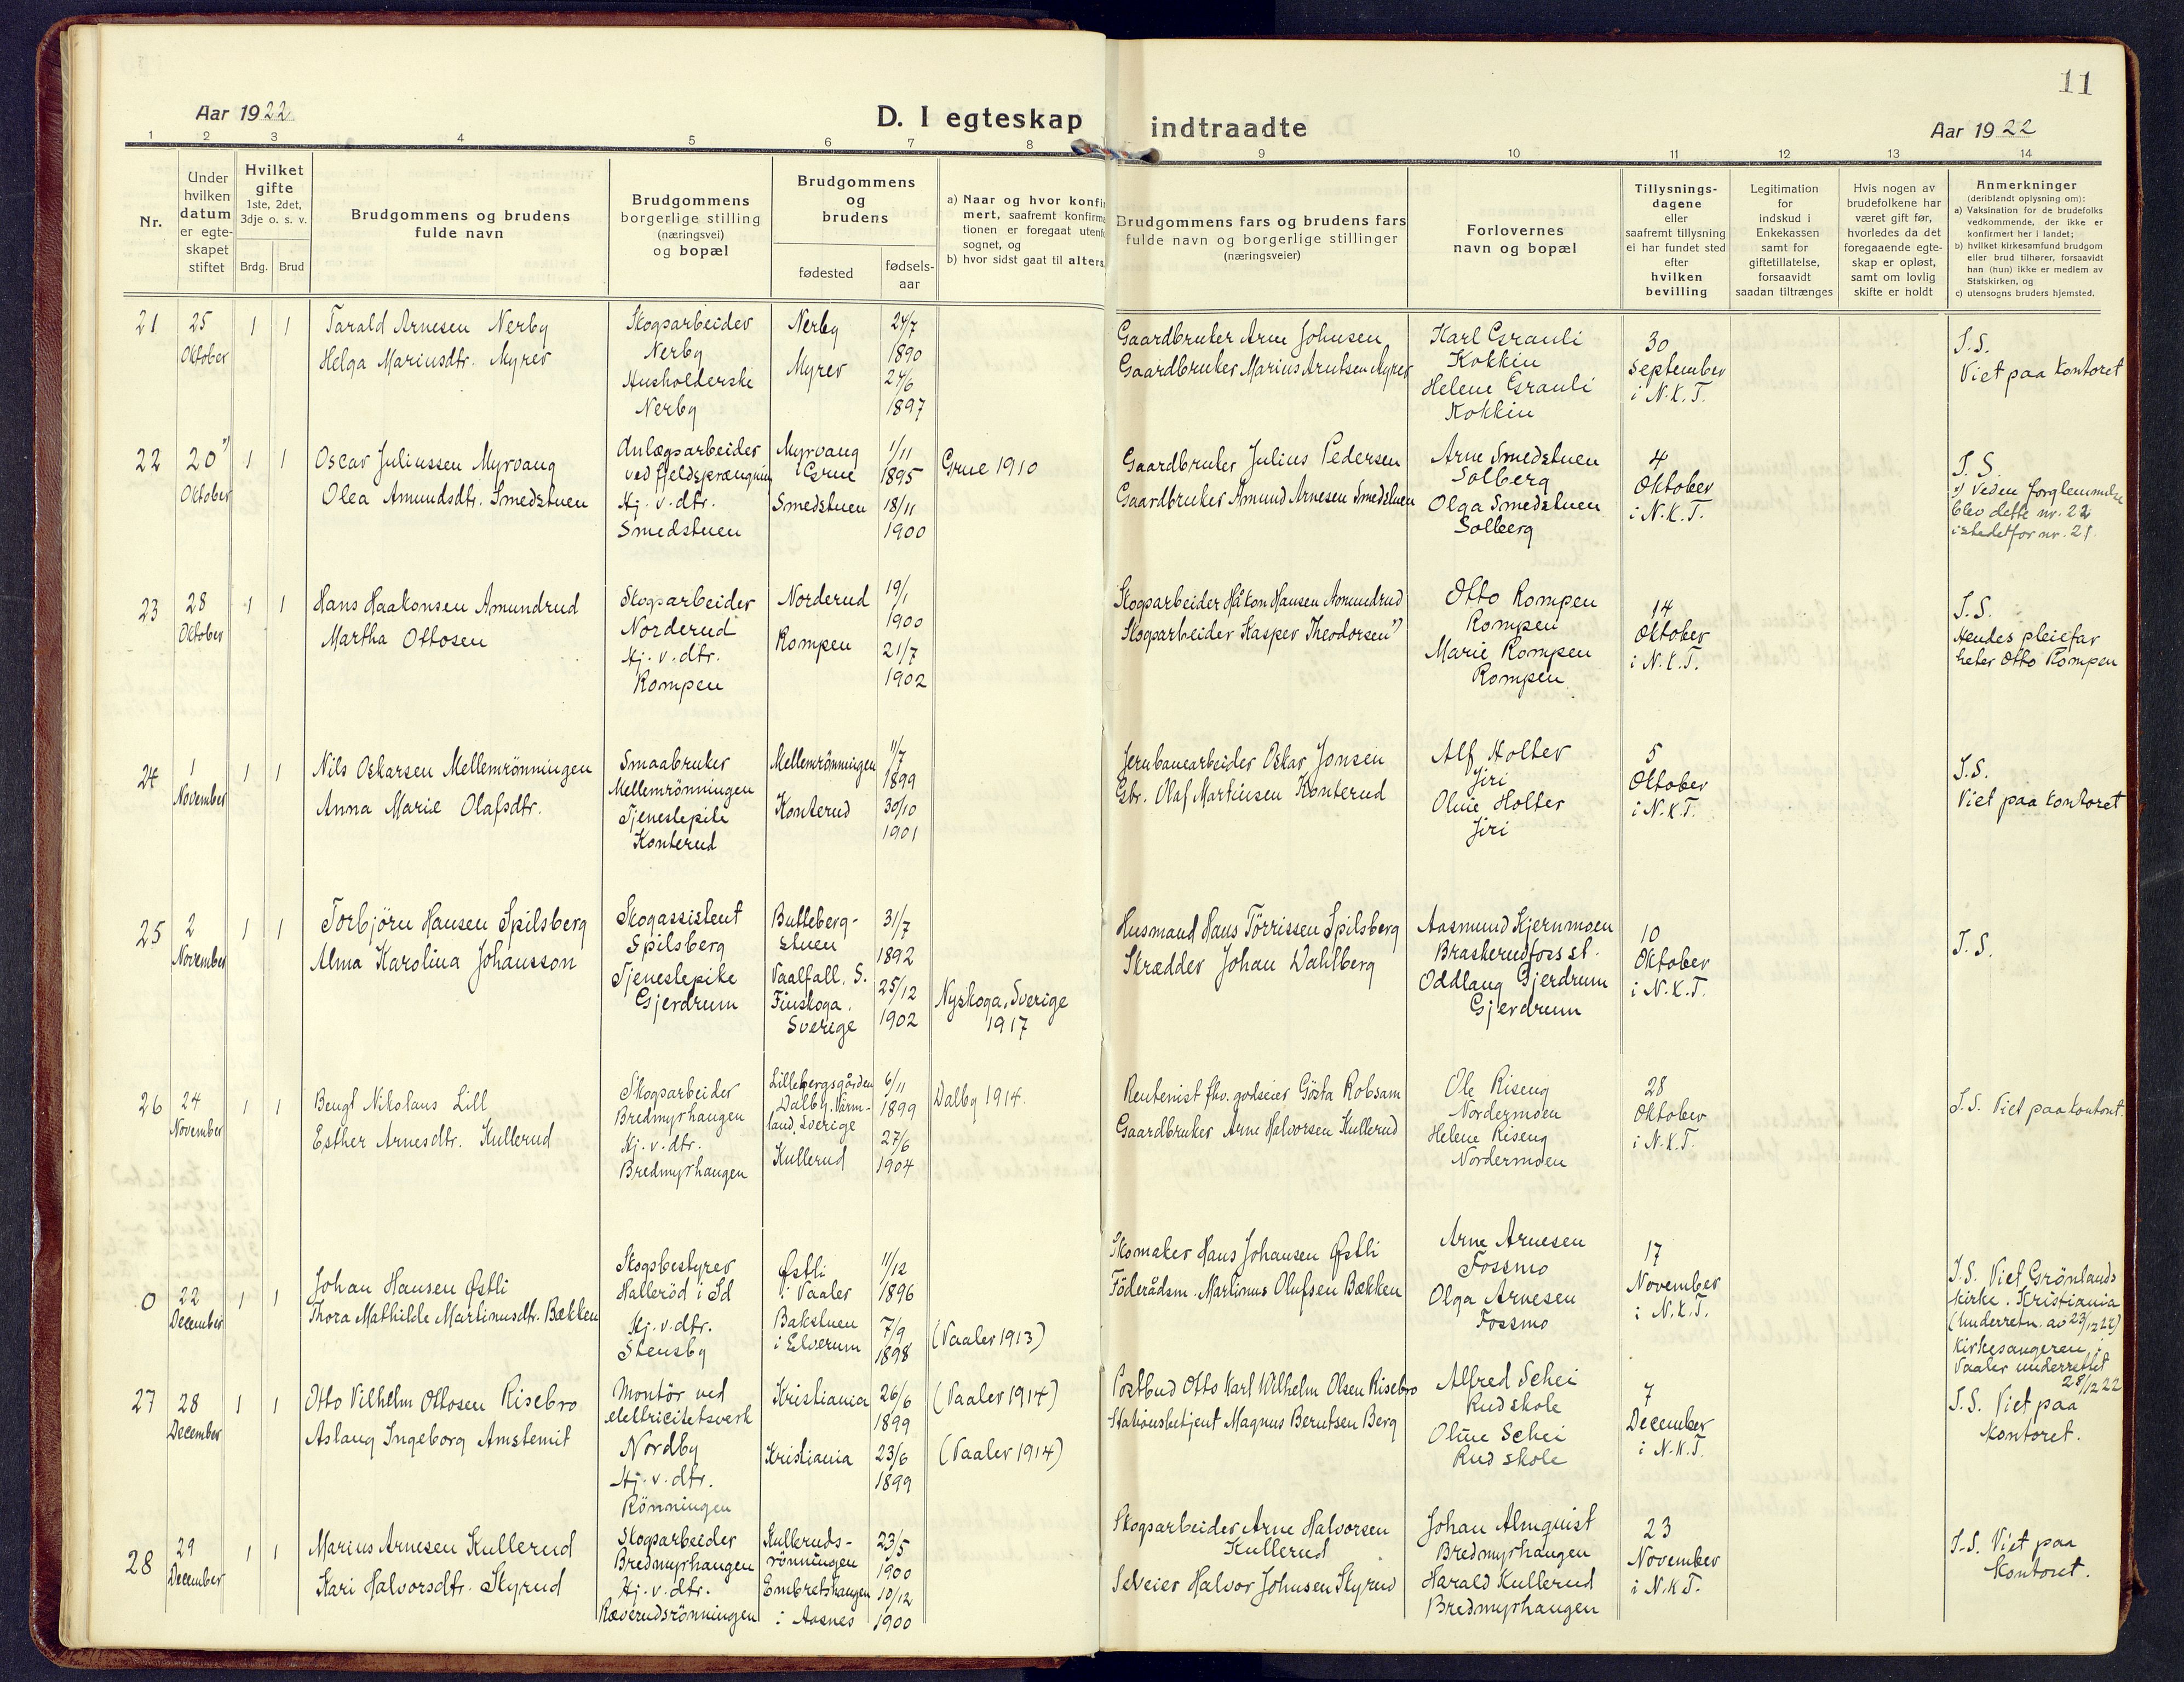 11
Aar 1922
D. I egteskap indtraadte
Aar 1922
1 2 3 4 5 6 7 8 9 10 11 12 13 14
Nr.
Under hvilken datum er egteskapet stiftet
Hvilket gifte 1ste, 2det, 3dje o. s. v.
Brdg. Brud
Brudgommens og brudens fulde navn
Brudgommens borgerlige stilling (næringsvei) og bopæl
Brudgommens og brudens
fødested
fødsels-aar
a) Naar og hvor konfir
mert, saafremt konfirma
tionen er foregaat utenfo
sognet, og
b) hvor sidst gaat til alters
Brudgommens fars og brudens fars
fulde navn og borgerlige stillinger
(næringsveier)
Forlovernes
navn og bopæl
Tillysnings-
dagene
eller
saafremt tillysning
ei har fundet sted
efter
hvilken
bevilling
Legitimation
for
indskud i
Enkekassen
samt for
giftetillatelse,
forsaavidt
saadan tiltrænges
Hvis nogen av
brudefolkene har
været gift før,
hvorledes da det
foregaaende egte-
skap er opløst,
samt om lovlig
skifte er holdt
Anmerkninger
(deriblandt oplysning om):
a) Vaksination for de brudefolks
vedkommende, der ikke er
konfirmert her i landet;
b) hvilket kirkesamfund brudgom
eller brud tilhører, forsaavidt
han (hun) ikke er medlem av
Statskirken, og
c) utensogns bruders hjemsted.
21
25
Oktober
1 1
Tarald Arnesen Nerby
Helga Mariusdtr. Myrer
Skogsarbeider
Nerby
Husholderske
Nerby
Nerby
Myrer
24/7
1890
24/6
1897
Gaardbruker Arne Johnsen
Gaardbruker Marius Arntsen Myrer
Karl Grauli
Kokkin
Helene Grauli
Kokkin
30
September
i N.K.T.
I.S.
Viet paa kontoret
22
20 *)
Oktober
1 1
Oscar Juliussen Myrvang
Olea Amundsdtr. Smedstuen
Anlægsarbeider
ved fjeldsprængning
Hj. v. dtr.
Smedstuen
Myrvang
i Grue
Smedstuen
1/11
1895
18/11
1900
Grue 1910
Gaardbruker Julius Pedersen
Gaardbruker Amund Arnesen Smedstuen
Arne Smedstuen
Solberg
Olga Smedstuen
Solberg
4
Oktober
i N.K.T.
I.S.
*) Ved en forglemmelse
blev dette nr. 22
istedetfor nr. 21.
23
28
Oktober
1 1
Hans Haakonsen Amundrud
Martha Ottosen
Skogsarbeider
Norderud
Hj. v. dtr.
Rompen
Norderud
Rompen
19/1
1900
21/7
1902
Skogsarbeider Håkon Hansen Amundrud
Skogsarbeider Kasper Theodorsen *)
Otto Rompen
Rompen
Marie Rompen
Rompen
14
Oktober
i N.K.T.
I.S.
Hendes pleiefar
heter Otto Rompen
24
1
November
1 1
Nils Oskarsen Mellemrönningen
Anna Marie Olafsdtr.
Smaabruker
Mellemrönningen
Tjenestepike
Konterud
Mellemrönningen
Konterud
11/7
1899
30/10
1901
Jernbanearbeider Oskar Jonsen
Gbr. Olaf Martinsen Konterud
Alf Holter
Jiri
Oline Holter
Jiri
5
Oktober
i N.K.T.
I.S.
Viet paa kontoret
25
2
November
1 1
Torbjörn Hansen Spilsberg
Alma Karolina Johansson
Skogassistent
Spilsberg
Tjenestepike
Gjerdrum
Butteberg-
stuen
Vaalfall, S.
Finskoga,
Sverige
31/7
1892
25/12
1902
Nyskoga, Sverige
1917
Husmand Hans Törrissen Spilsberg
Skrædder Johan Dahlberg
Aasmund Kjernmoen
Braskerudfoss st.
Oddlaug Gjerdrum
Gjerdrum
10
Oktober
i N.K.T.
I.S.
26
24
November
1 1
Bengt Nikolaus Lill
Esther Arnesdtr. Kullerud
Skogsarbeider
Bredmyrhaugen
Hj. v. dtr.
Bredmyrhaugen
Lillebergsgården
Dalby, Värm-
land, Sverige
Kullerud
6/11
1899
27/6
1904
Dalby 1914.
Rentenist fhv. godseier Gösta Robsam
Gaardbruker Arne Halvorsen Kullerud
Ole Riseng
Nordermoen
Helene Riseng
Nordermoen
28
Oktober
i N.K.T.
I.S. Viet paa kontoret.
0
22
December
1 1
Johan Hansen Østli
Thora Mathilde Martinusdtr. Bækken
Skogsbestyrer
Halleröd i Id
Hj. v. dtr.
Stensby
Østli
i Vaaler
Bakstuen
i Elverum
11/12
1896
7/9
1898
(Vaaler 1913)
Skomaker Hans Johansen Østli
Föderådsm. Martinus Olufsen Bækken
Arne Arnesen
Fossmo
Olga Arnesen
Fossmo
17
November
i N.K.T.
I.S. Viet Grönlands
kirke. Kristiania
(Underretn. av 23/12 22)
Kirkesangeren i
Vaaler underrettet
28/12 22
27
28
December
1 1
Otto Vilhelm Ottosen Risebro
Aslaug Ingeborg Amstemit
Montör ved
elektricitetsverk
Nordby
Hj. v. dtr.
Rönningen
Kristiania
Kristiania
26/6
1899
23/6
1899
(Vaaler 1914)
(Vaaler 1914)
Postbud Otto Karl Wilhelm Olsen Risebro
Stationsbetjent Magnus Berntsen Berg
Alfred Schei
Rud skole
Oline Schei
Rud skole
7
December
i N.K.T.
I.S. Viet paa
Kontoret.
28
29
December
1 1
Marius Arnesen Kullerud
Kari Halvorsdtr. Skyrud
Skogsarbeider
Bredmyrhaugen
Hj. v. dtr.
Ræverudsrönningen
Kulleruds-
rönningen
Embretshaugen
i Aasnes
23/5
1900
10/12
1900
Skogsarbeider Arne Halvorsen
Kullerud
Selveier Halvor Johnsen Skyrud
Johan Almquist
Bredmyrhaugen
Harald Kullerud
Bredmyrhaugen
23
November
i N.K.T.
I.S. Viet paa
Kontoret.